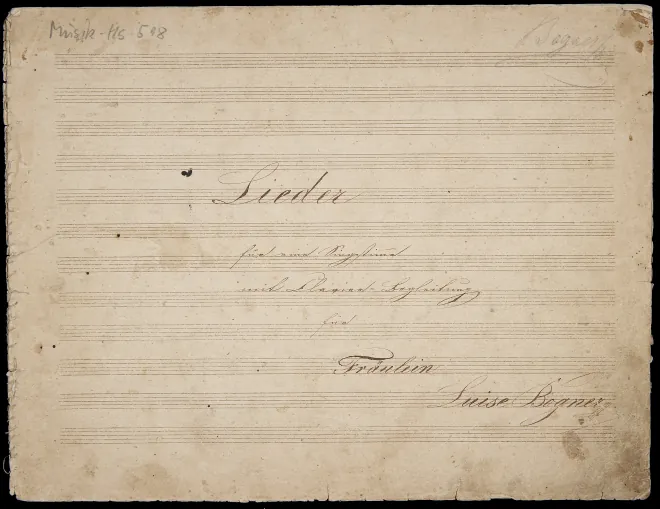 Musik-Hs 598
Lieder
für eine Singstime
mit Klavier-Begleitung
für
Fräulein
Luise Bogner